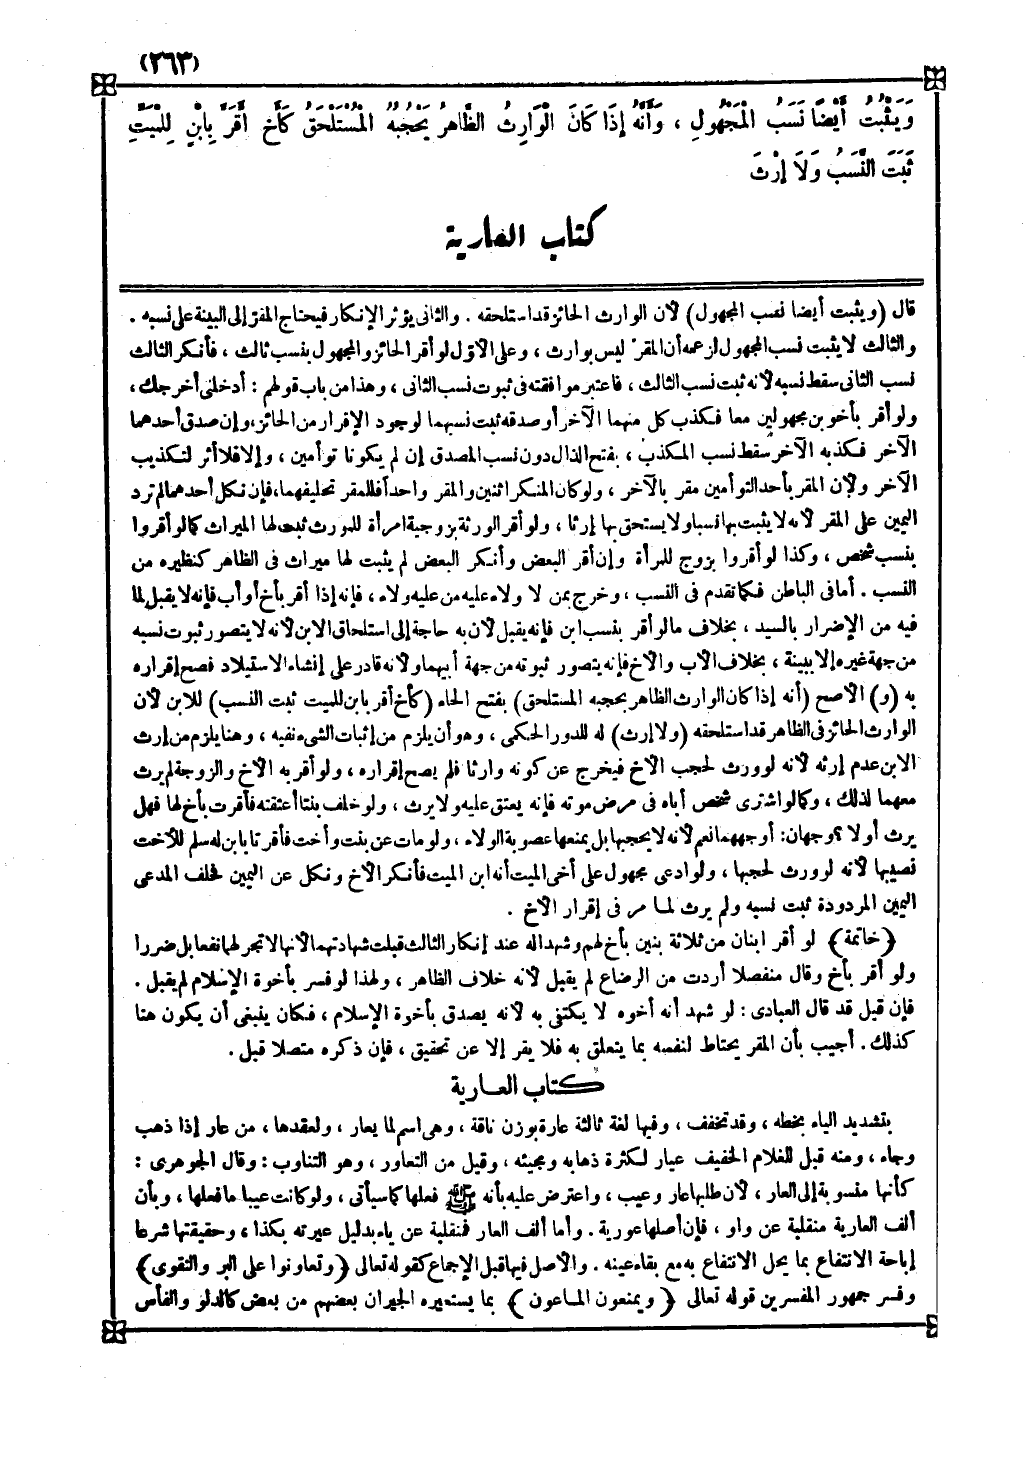 (٢٦٣)
وَيَثْبُتُ أَيْضًا نَسَبُ الْمَجْهُولِ ، وَأَنَّهُ إِذَا كَانَ الْوَارِثُ الظَّاهِرُ يَحْجُبُهُ الْمُسْتَلْحَقُ كَأَخٍ أَقَرَّ بِابْنٍ لِلْمَيِّتِ
ثَبَتَ النَّسَبُ وَلَا إِرْثَ
كتاب العارية
قال (ويثبت أيضا نسب المجهول) لأن الوارث الحائز قد استلحقه . والثانى يؤثر الإنكار فيحتاج المقر إلى البينة على نسبه .
والثالث لا يثبت نسب المجهول لزعمه أن المقر ليس بوارث ، وعلى الأول لو أقر الحائز والمجهول بنسب ثالث ، فأنكر الثالث
نسب الثانى سقط نسبه لأنه ثبت نسب الثالث ، فاعتبر موافقته فى ثبوت نسب الثانى ، وهذا من باب قولهم : أدخلنى أخرجك ،
ولو أقر بأخوين مجهولين معا فكذب كل منهما الآخر أو صدقه ثبت نسبهما لوجود الإقرار من الحائز ، وإن صدق أحدهما
الآخر فكذبه الآخر سقط نسب المكذب ، بفتح الذال دون نسب المصدق إن لم يكونا توأمين ، وإلا فلا أثر لتكذيب
الآخر ولأن المقر بأحد التوأمين مقر بالآخر ، ولو كان المنكر اثنين والمقر واحدا فللمقر تحليفهما ، فإن نكل أحدهما لم ترد
اليمين على المقر لأنه لا يثبت بها نسبا ولا يستحق بها إرثا ، ولو أقر الورثة بزوجية امرأة للمورث ثبت لها الميراث كما لو أقروا
بنسب شخص ، وكذا لو أقروا بزوج للمرأة وإن أقر البعض وأنكر البعض لم يثبت لها ميراث فى الظاهر كنظيره من
النسب . أما فى الباطن فكما تقدم فى النسب ، وخرج بمن لا ولاء عليه من عليه ولاء ، فإنه إذا أقر بأخ أو أب فإنه لا يقبل لما
فيه من الإضرار بالسيد ، بخلاف ما لو أقر بنسب ابن فإنه يقبل لأن به حاجة إلى استلحاق الابن لأنه لا يتصور ثبوت نسبه
من جهة غيره إلا ببينة ، بخلاف الأب والأخ فإنه يتصور ثبوته من جهة أبيهما ولأنه قادر على إنشاء الاستيلاد فصح إقراره
به (و) الأصح (أنه إذا كان الوارث الظاهر يحجبه المستلحق) بفتح الحاء (كأخ أقر بابن للميت ثبت النسب) للابن لأن
الوارث الحائز فى الظاهر قد استلحقه (ولا إرث) له للدور الحكمى ، وهو أن يلزم من إثبات الشىء نفيه ، وهنا يلزم من إرث
الابن عدم إرثه لأنه لو ورث لحجب الأخ فيخرج عن كونه وارثا فلم يصح إقراره ، ولو أقر به الأخ والزوجة لم يرث
معهما لذلك ، وكما لو اشترى شخص أباه فى مرض موته فإنه يعتق عليه ولا يرث ، ولو خلف بنتا أعتقته فأقرت بأخ لها فهل
يرث أو لا ؟ وجهان : أوجههما نعم لأنه لا يحجبها بل يمنعها عصوبة الولاء ، ولو مات عن بنت وأخت فأقرتا بابن له سلم للأخت
نصيبها لأنه لو ورث لحجبها ، ولو ادعى مجهول على أخى الميت أنه ابن الميت فأنكر الأخ ونكل عن اليمين فحلف المدعى
اليمين المردودة ثبت نسبه ولم يرث لما مر فى إقرار الأخ .
﴿خاتمة﴾ لو أقر ابنان من ثلاثة بنين بأخ لهم وشهدا له عند إنكار الثالث قبلت شهادتهما لأنها لا تجر لهما نفعا بل ضررا
ولو أقر بأخ وقال منفصلا أردت من الرضاع لم يقبل لأنه خلاف الظاهر ، ولهذا لو فسر بأخوة الإسلام لم يقبل .
فإن قيل قد قال العبادى : لو شهد أنه أخوه لا يكتفى به لأنه يصدق بأخوة الإسلام ، فكان ينبغى أن يكون هنا
كذلك . أجيب بأن المقر يحتاط لنفسه بما يتعلق به فلا يقر إلا عن تحقيق ، فإن ذكره متصلا قبل .
كتاب العارية
بتشديد الياء بخطه ، وقد تخفف ، وفيها لغة ثالثة عارة بوزن ناقة ، وهى اسم لما يعار ، ولعقدها ، من عار إذا ذهب
وجاء ، ومنه قيل للغلام الخفيف عيار لكثرة ذهابه ومجيئه ، وقيل من التعاور ، وهو التناوب : وقال الجوهرى :
كأنها منسوبة إلى العار ، لأن طلبها عار وعيب ، واعترض عليه بأنه ﷺ فعلها كما سيأتى ، ولو كانت عيبا ما فعلها ، وبأن
ألف العارية منقلبة عن واو ، فإن أصلها عورية . وأما ألف العار فمنقلبة عن ياء بدليل عيرته بكذا ، وحقيقتها شرعا
إباحة الانتفاع بما يحل الانتفاع به مع بقاء عينه . والأصل فيها قبل الإجماع كقوله تعالى ﴿وتعاونوا على البر والتقوى﴾
وفسر جمهور المفسرين قوله تعالى ﴿ويمنعون الماعون﴾ بما يستعيره الجيران بعضهم من بعض كالدلو والفأس